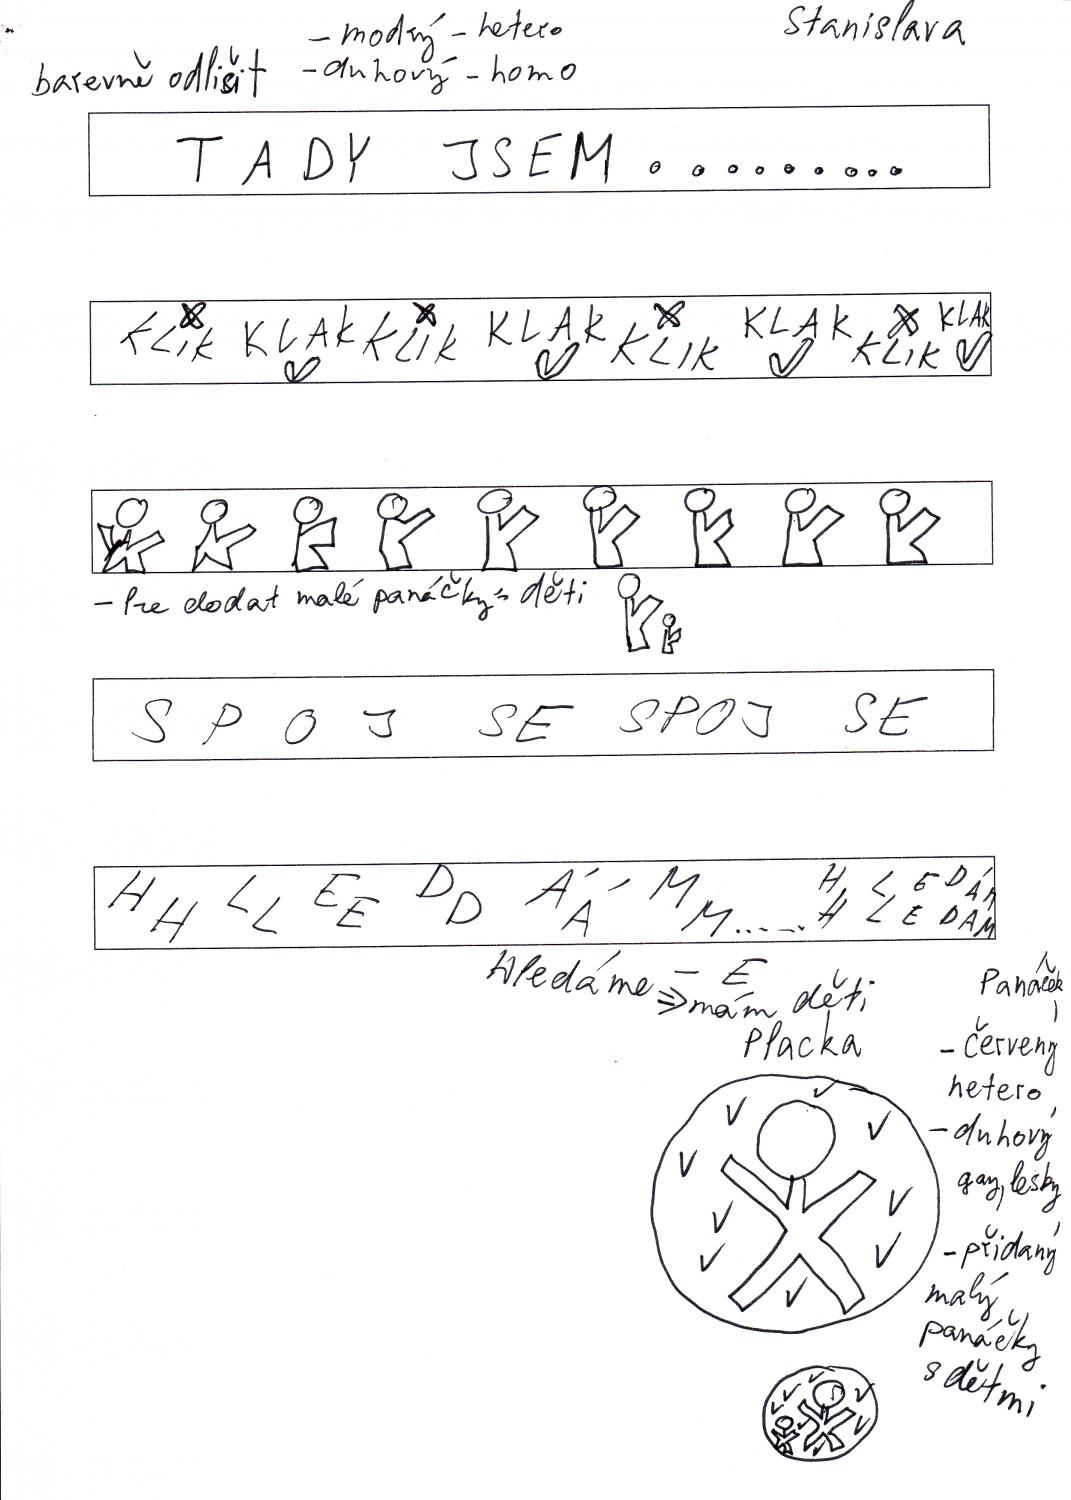 Stanislava
- modrý - hetero
barevně odlišit - duhový - homo
TADY JSEM.........
KLIK KLAK KLIK KLAK KLIK KLAK KLIK KLAK
- dodat malé panáčky = děti
SPOJ SE SPOJ SE
HHLLEEDDÁÁMM..... HHLLEEDDÁAMM
Hledáme - E
=> mám děti
Placka
Panáček
- červený
hetero
- duhový
gay, lesby
- přidaný
malý
panáčky
s dětmi